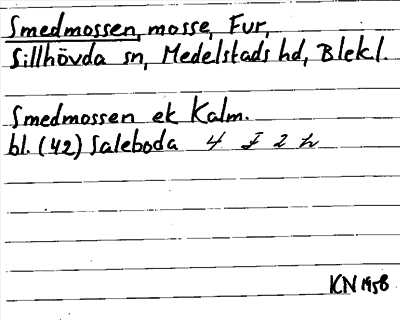 Smedmossen, mosse, Fur,
Sillhövda sn, Medelstads hd, Blekl.
Smedmossen ek Kalm.
bl. (42) Saleboda 4 I 2 h
KN 1958